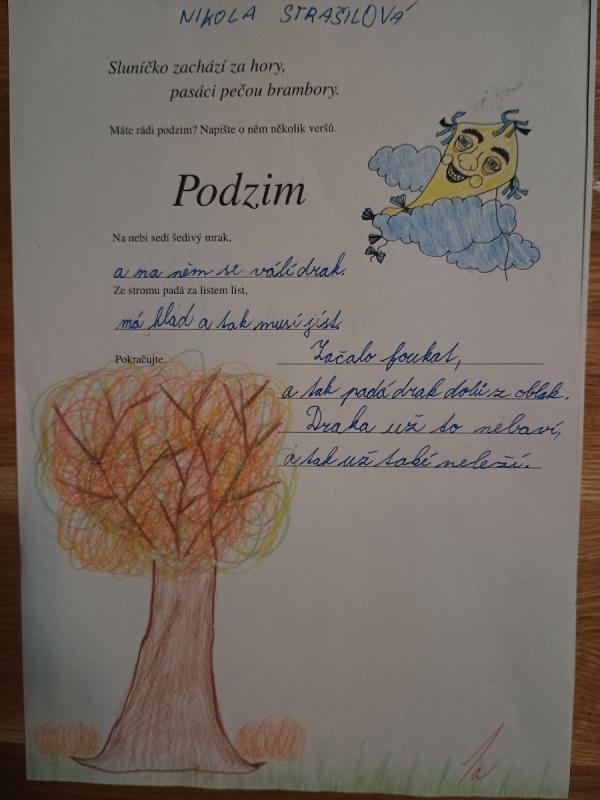 NIKOLA STRAŠILOVÁ
Sluníčko zachází za hory,
pasáci pečou brambory.
Máte rádi podzim? Napište o něm několik veršů.
Podzim
Na nebi sedí šedivý mrak,
a na něm se válí drak.
Ze stromu padá za listem list,
má hlad a tak musí jíst.
Pokračujte.
Začalo foukat,
a tak padá drak dolů z oblak.
Draka už to nebaví,
a tak už také neleží.